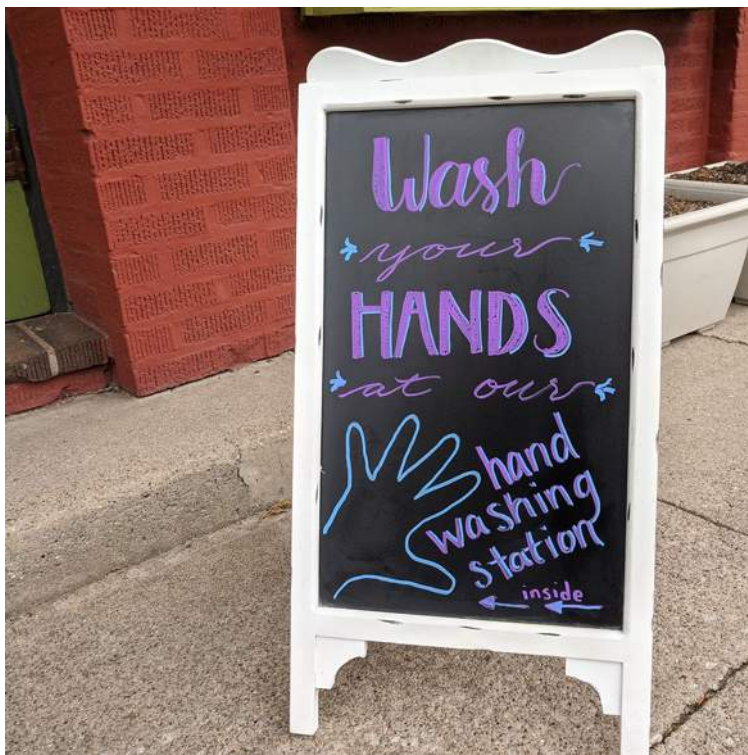 Wash
your
HANDS
at our
hand
washing
station
inside